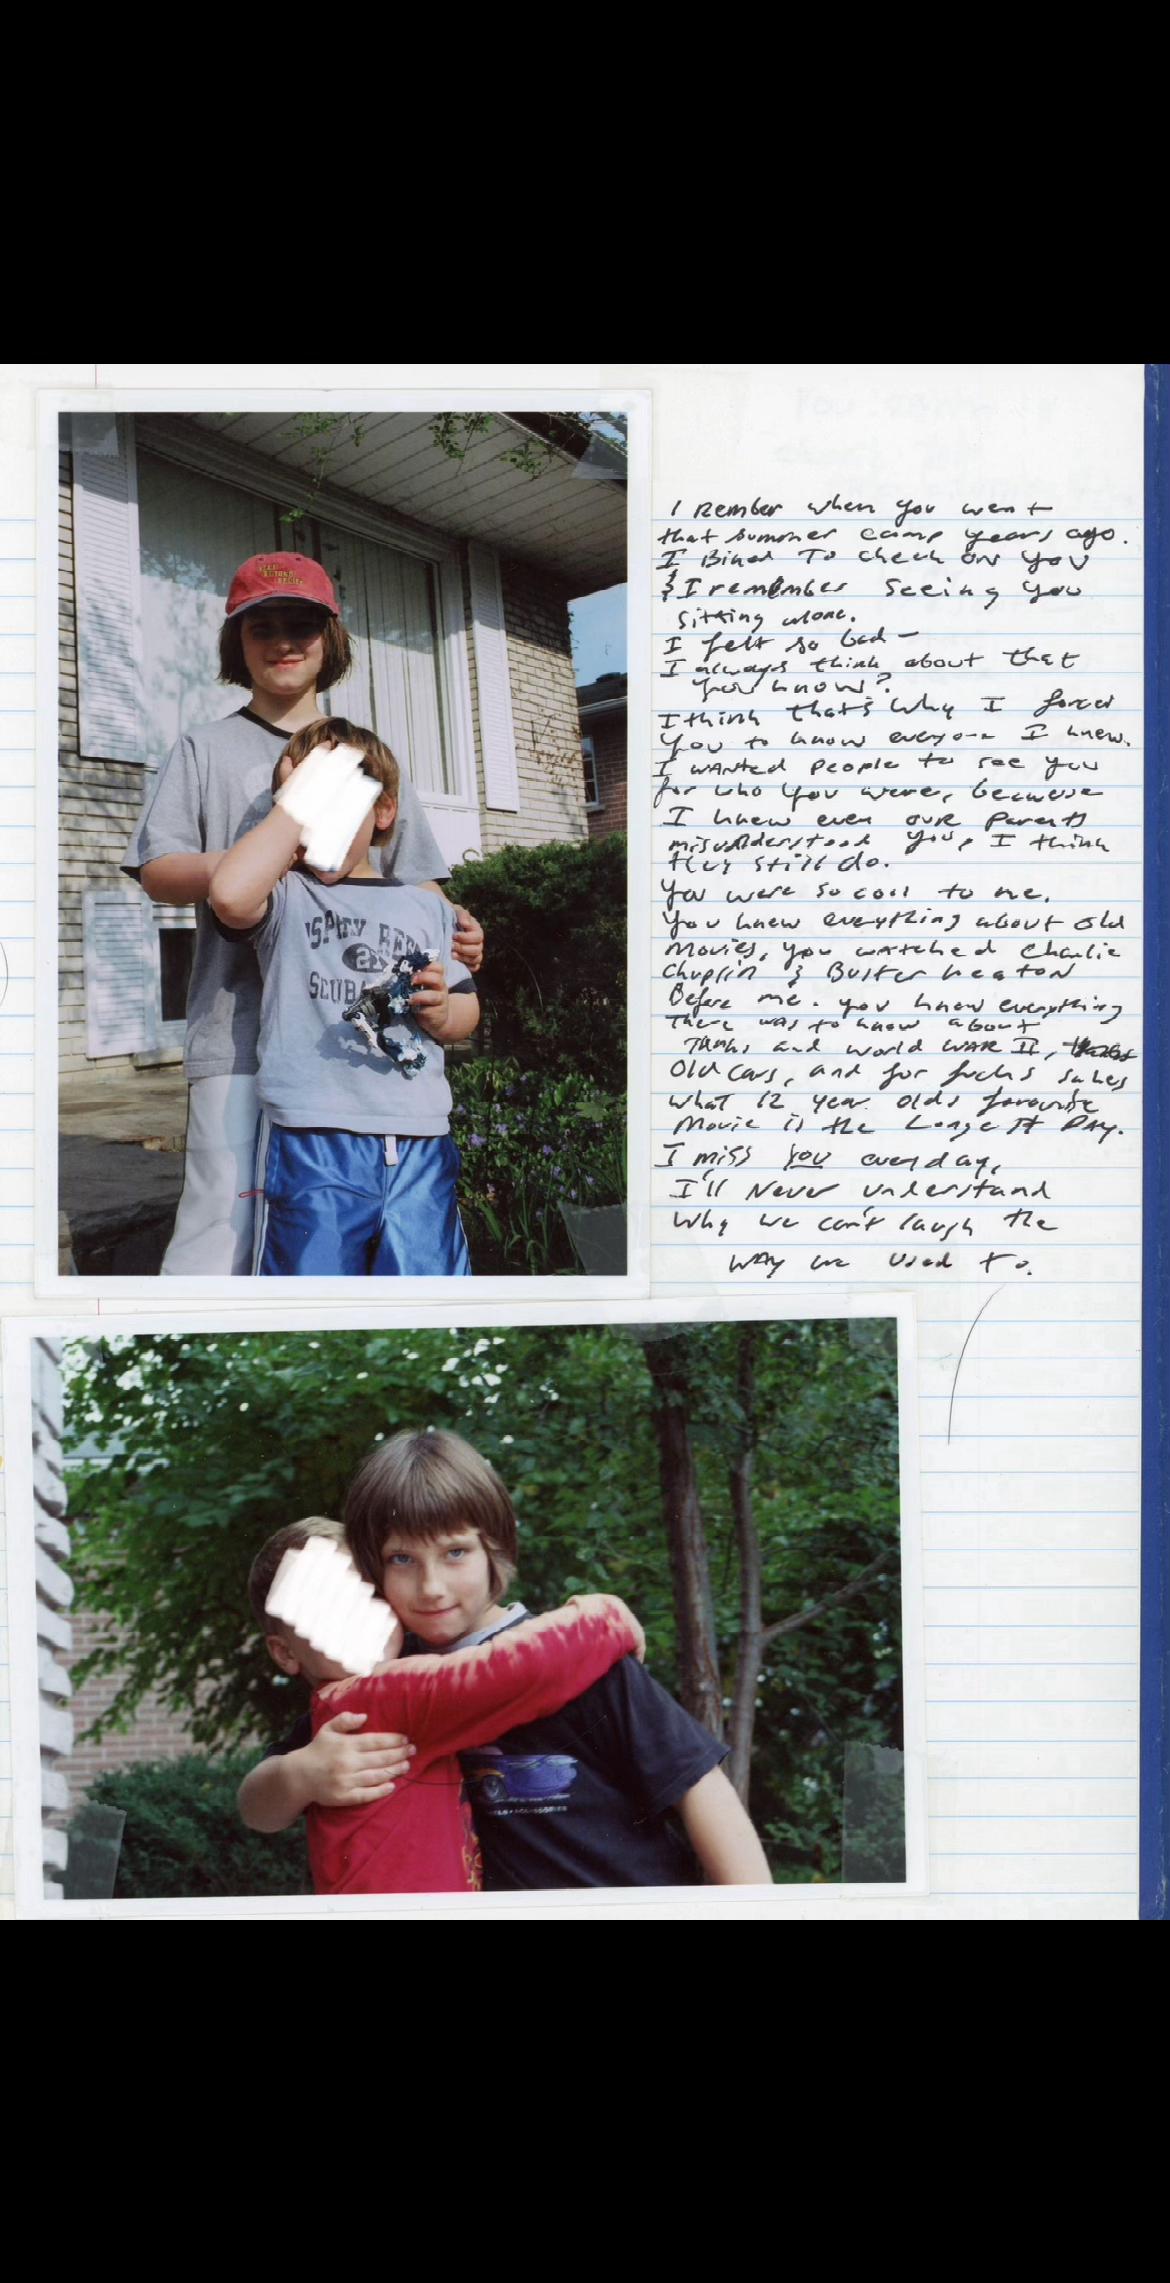 I Rember when you went
that summer camp years ago.
I Biked To check on you
& I remember Seeing you
sitting alone.
I felt so bad -
I always think about that
you know?
I think that's why I forced
you to know everyone I knew.
I wanted people to see you
for who you were, because
I knew even our Parents
misunderstood you, I think
they still do.
You were so cool to me.
You knew everything about old
Movies, you watched Charlie
Chaplin & Buster Keaton
Before me. you knew everything
there was to know about
Tanks and world WAR II,
Old cars, and for fucks sakes
what 12 year olds favourite
Movie is the Longest Day.
I miss you everyday,
I'll Never understand
why we can't laugh the
way we used to.
SCUBA